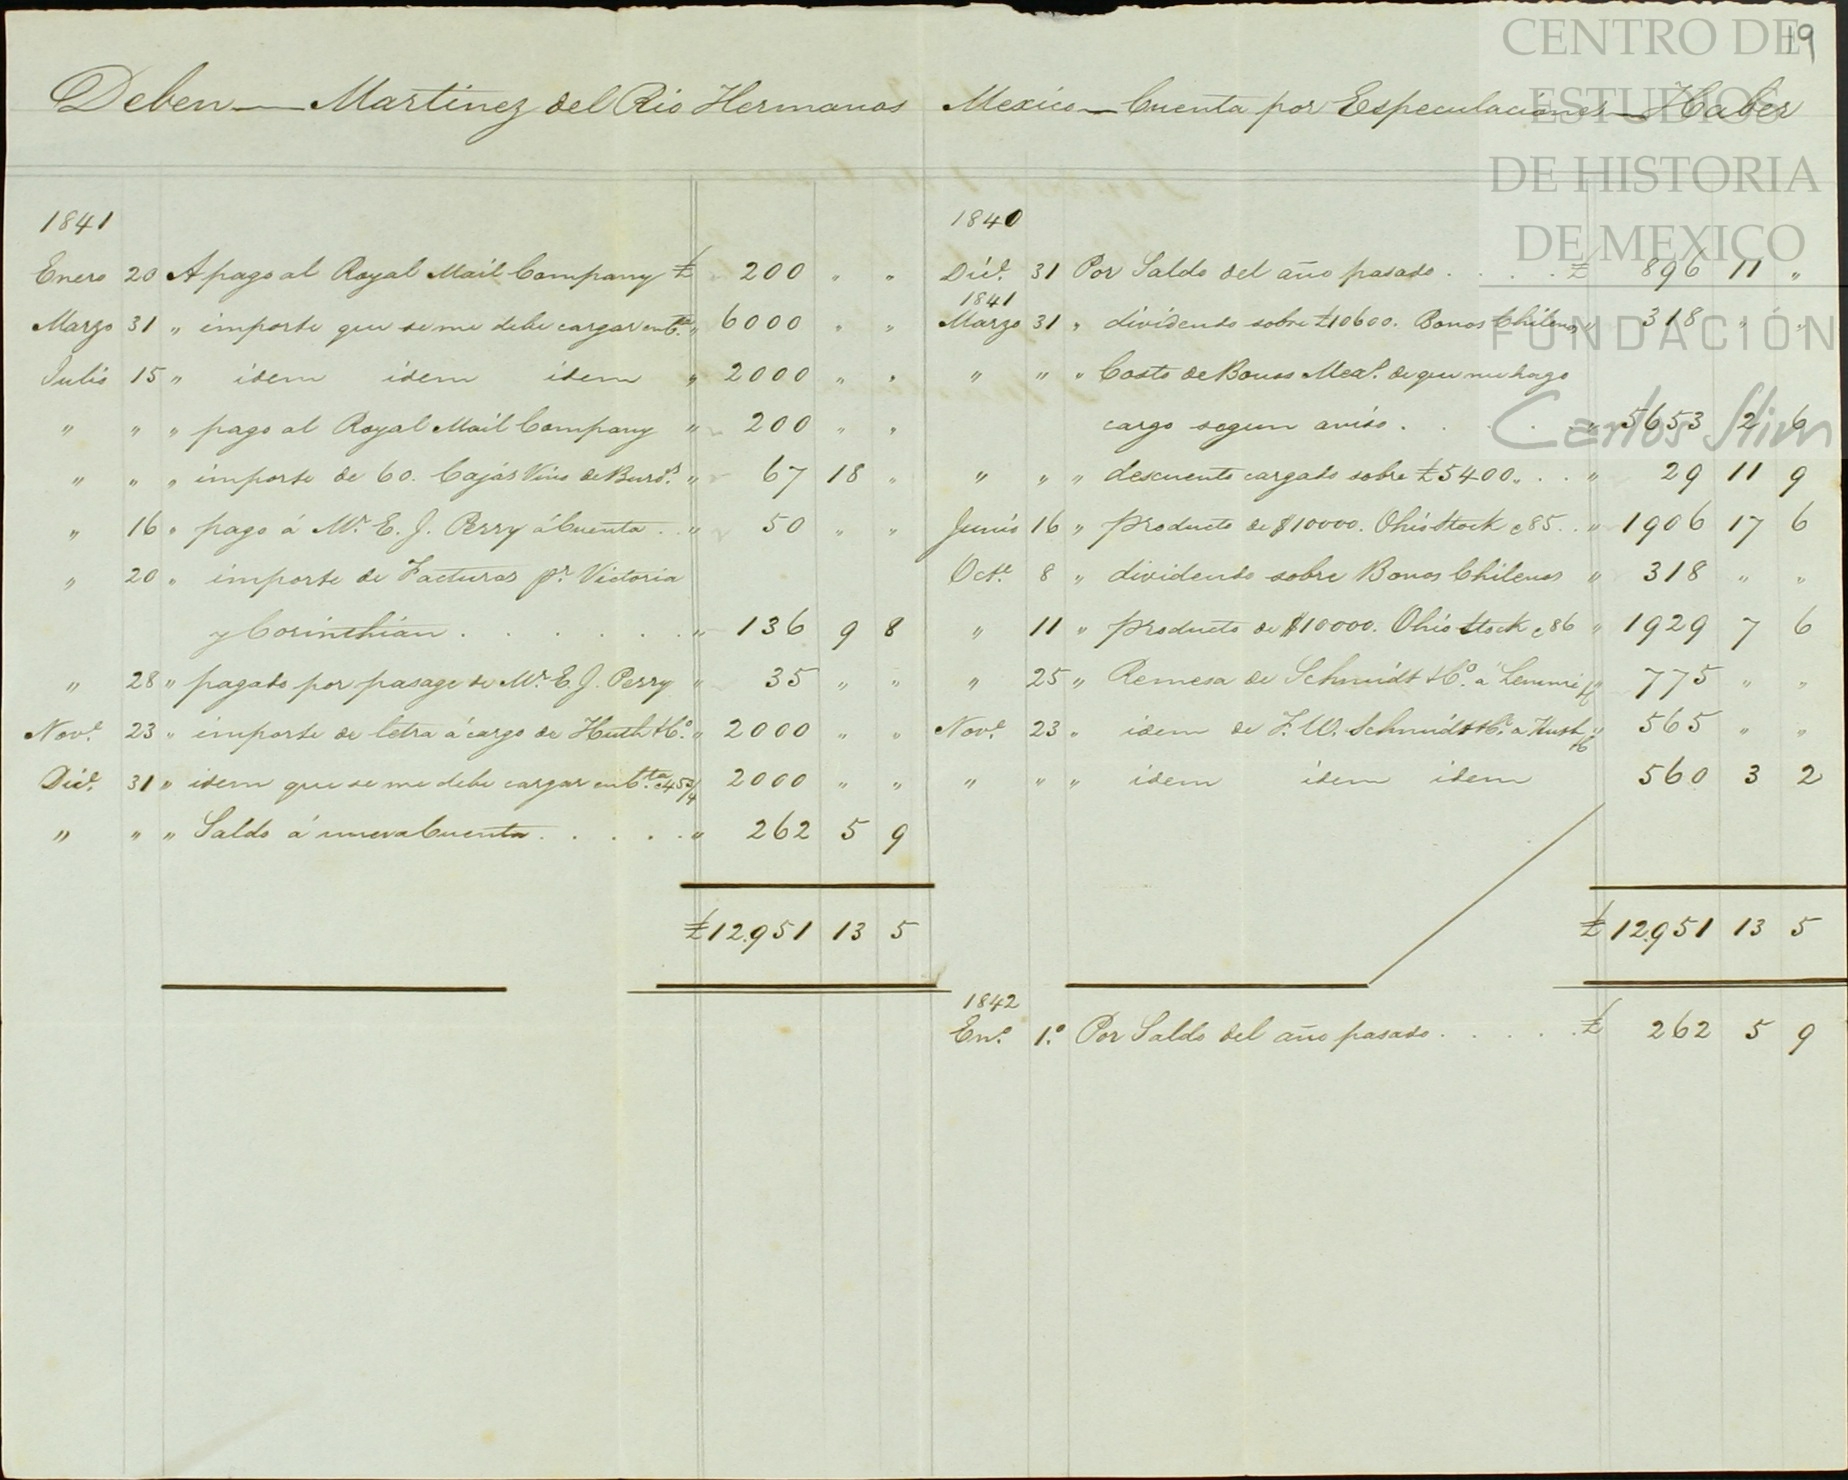 19
CENTRO DE
ESTUDIOS
DE HISTORIA
DE MEXICO
FUNDACIÓN
Carlos Slim
Deben — Martinez del Rio Hermanos Mexico — Cuenta por Especulaciones — Haber
1841
Enero 20 A pago al Royal Mail Company £ 200 " "
Marzo 31 " importe que se me debe cargar en Cta. " 6000 " "
Julio 15 " idem idem idem " 2000 " "
" " " pago al Royal Mail Company " 200 " "
" " " importe de 60. Cajas Vino de Burds. " 67 18 "
" 16 " pago á Mr. E. J. Perry á Cuenta . . " 50 " "
" 20 " importe de Facturas pr. Victoria
y Corinthian . . . . . . " 136 9 8
" 28 " pagado por pasage de Mr. E. J. Perry " 35 " "
Nove. 23 " importe de letra á cargo de Huth & Co. " 2000 " "
Dice. 31 " idem que se me debe cargar en Cta. @ 45 3/4 2000 " "
" " " Saldo á nueva Cuenta . . . . . " 262 5 9
£ 12.951 13 5
1840
Dice. 31 Por Saldo del año pasado . . . . £ 896 11 "
1841
Marzo 31 " dividendo sobre £10600. Bonos Chilenos " 318 " "
" " " Costo de Bonos Mexs. de que me hago
cargo segun aviso . . . . . " 5653 2 6
" " " descuento cargado sobre £5400 . . . " 29 11 9
Junio 16 " producto de $10000. Ohio Stock @ 85 . . " 1906 17 6
Octe. 8 " dividendo sobre Bonos Chilenos " 318 " "
" 11 " producto de $10000. Ohio Stock @ 86 " 1929 7 6
" 25 " Remesa de Schmidt & Co. á " 775 " "
Nove. 23 " idem de F. W. Schmidt & Co. a " 565 " "
" " " idem idem idem 560 3 2
£ 12.951 13 5
1842
Eno. 1o. Por Saldo del año pasado . . . . . £ 262 5 9